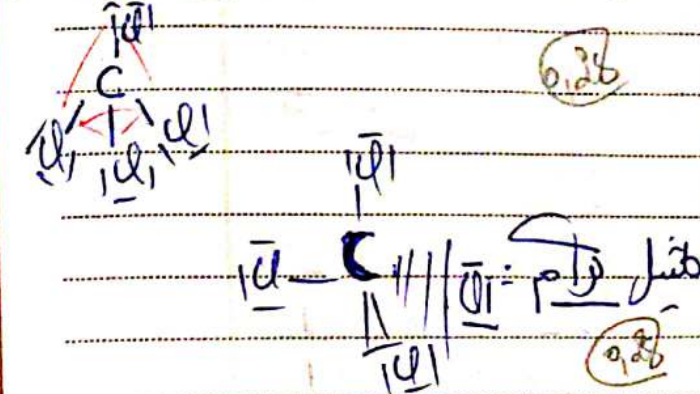 |Cl|
C
0,25
|Cl| |Cl| |Cl|
|Cl|
|Cl — C |Cl| : تمثيل كرام
|Cl|
0,25